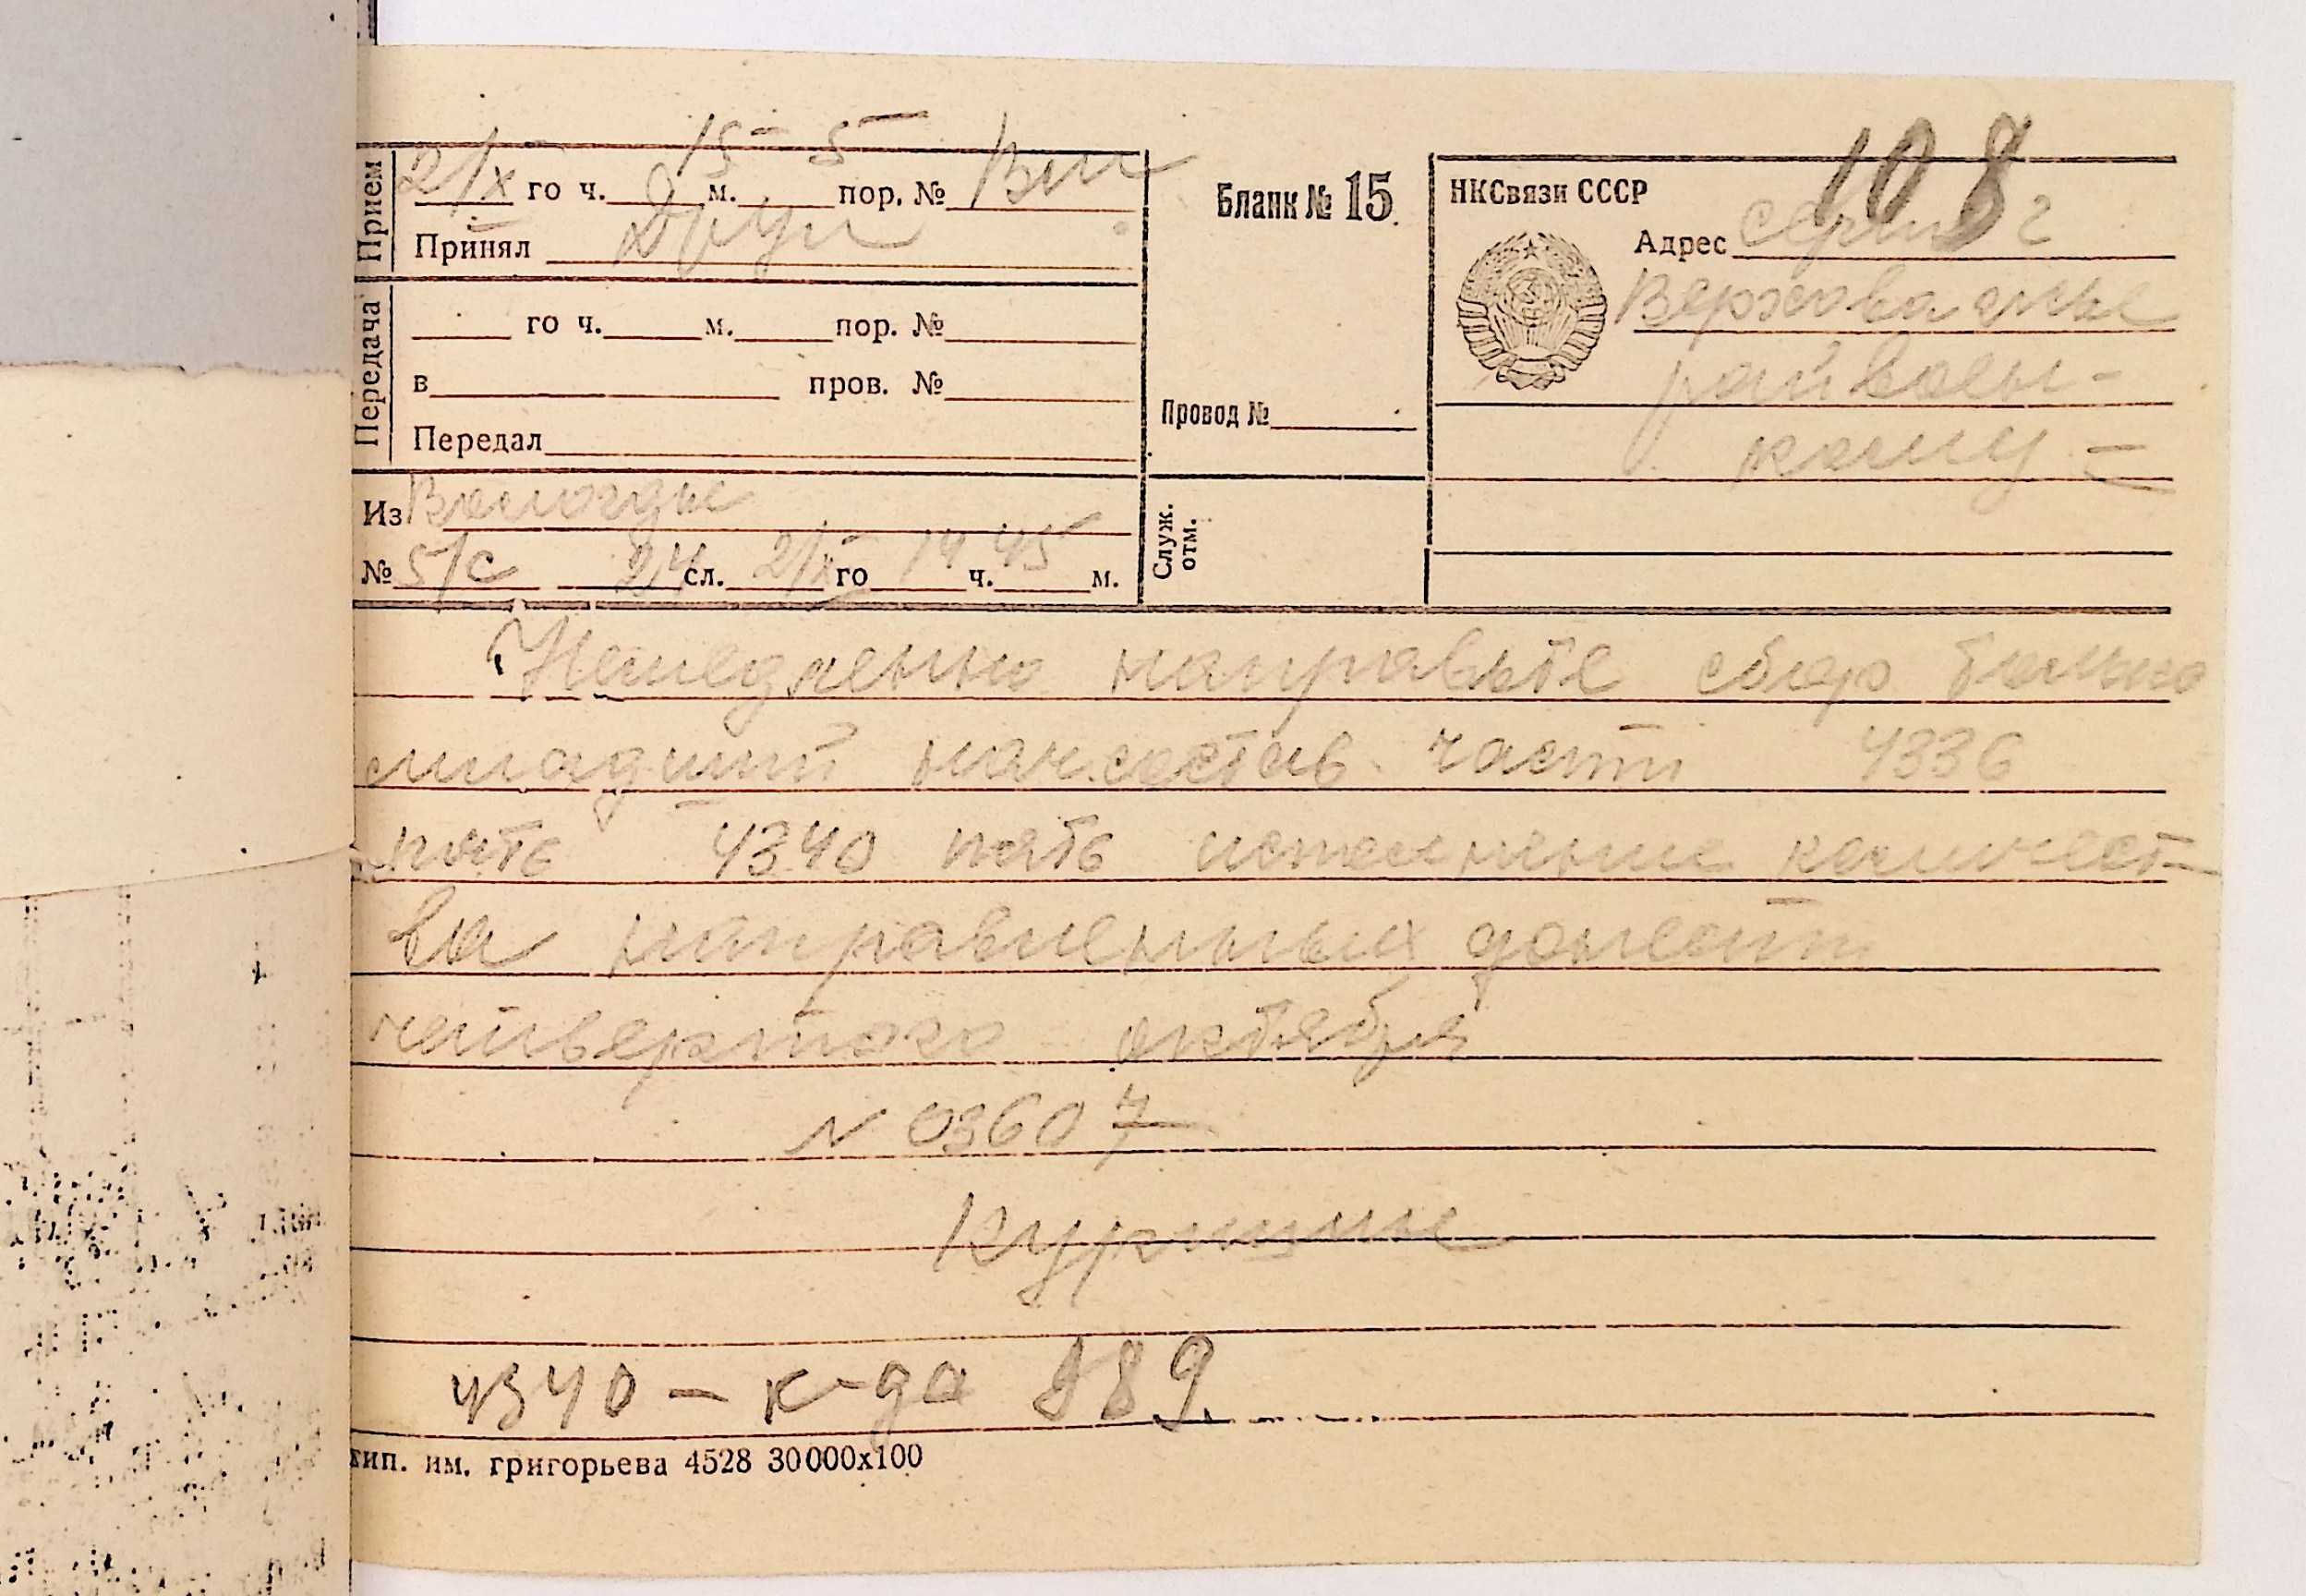 108
Прием
2/X го ч. 15 м. 5 пор. №
Принял
Передача
го ч. м. пор. №
в пров. №
Передал
Из Вологды
№ 5/с 24 сл. 2/X го 14 ч. 45 м.
Бланк № 15
Провод №
Служ. отм.
НКСвязи СССР
Адрес серии г
Верховажье
райвоен-
кому =
Немедленно направьте сбор
младший начсостав части 4336
пять 4340 пять исполнение количест-
ва направленных донести
четвертого октября
N 03607
4340 - к-да 989.
тип. им. григорьева 4528 30000х100